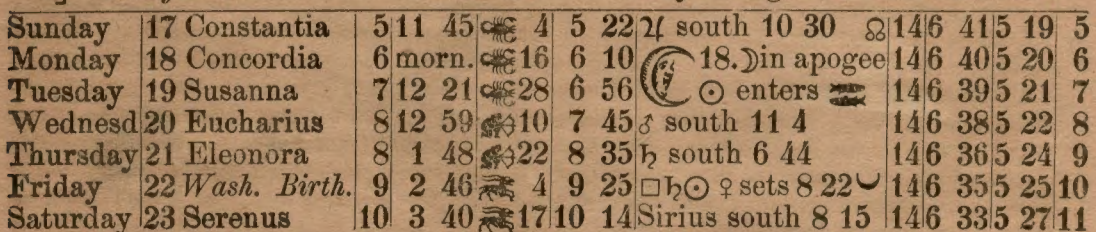 Sunday 17 Constantia 5 11 45 ♏ 4 5 22 ♃ south 10 30 ☊ 14 6 41 5 19 5
Monday 18 Concordia 6 morn. ♏ 16 6 10 18. ☽ in apogee 14 6 40 5 20 6
Tuesday 19 Susanna 7 12 21 ♏ 28 6 56 ☉ enters ♓ 14 6 39 5 21 7
Wednesd 20 Eucharius 8 12 59 ♐ 10 7 45 ♂ south 11 4 14 6 38 5 22 8
Thursday 21 Eleonora 8 1 48 ♐ 22 8 35 ♄ south 6 44 14 6 36 5 24 9
Friday 22 Wash. Birth. 9 2 46 ♑ 4 9 25 □ ♄ ☉ ♀ sets 8 22 14 6 35 5 25 10
Saturday 23 Serenus 10 3 40 ♑ 17 10 14 Sirius south 8 15 14 6 33 5 27 11